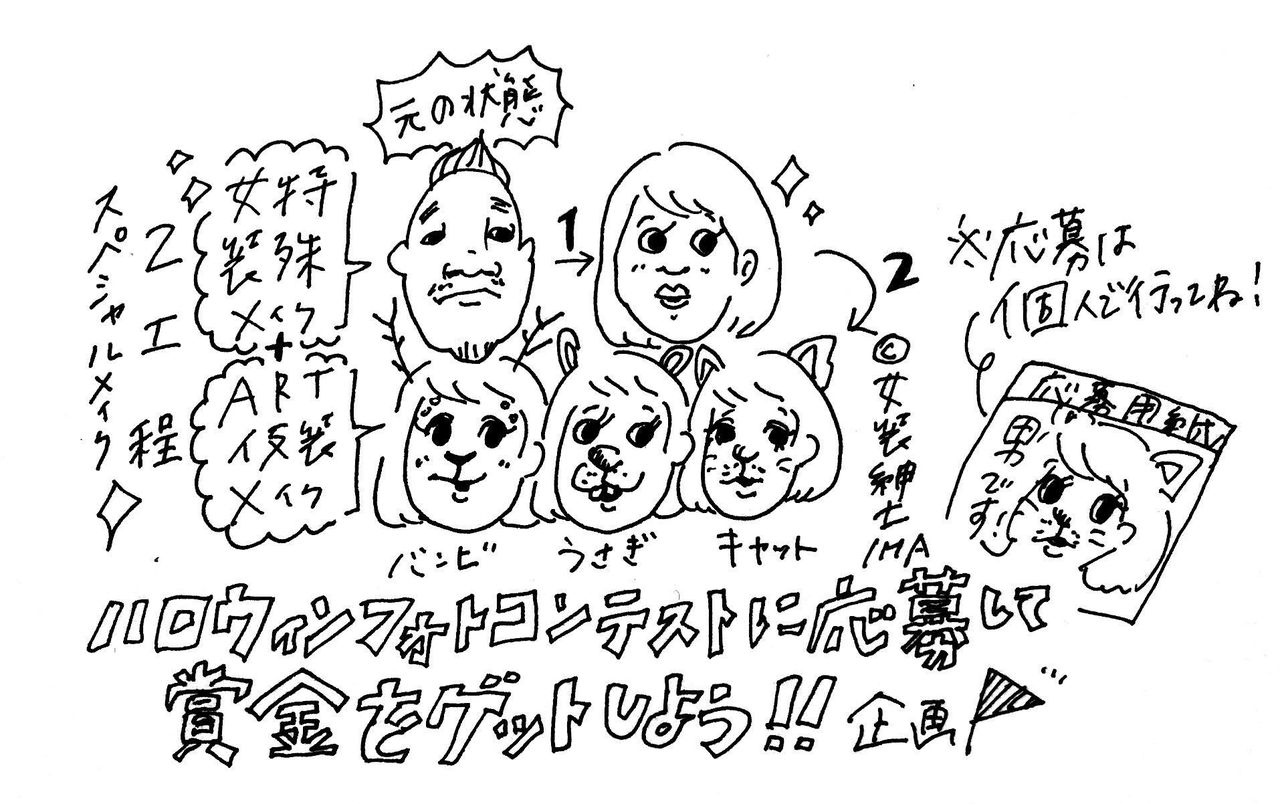 元の状態
スペシャルメイク
2工程
特殊
女装
メイク
+
ART
仮装
メイク
1
2
©女装紳士IMA
※応募は
個人で行ってね!
応募用紙
男です!
バンビ
うさぎ
キャット
ハロウィンフォトコンテストに応募して
賞金をゲットしよう!!企画